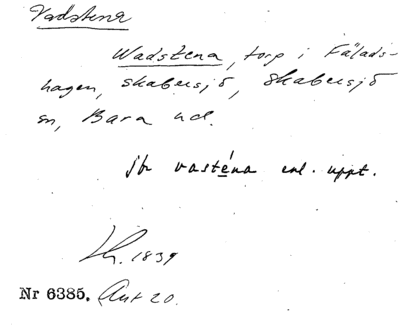 Vadstena
Wadstena, torp i Fälads-
hagen, Skabersjö, Skabersjö
sn, Bara hd.
jfr vasténa enl. uppt.
1839
Nr 6385. Ant 20.